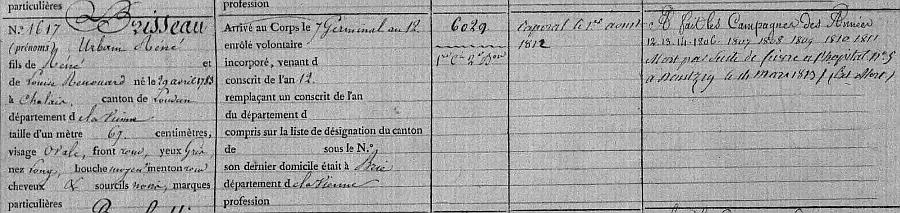 particulières
profession
N.° 1617 Brisseau
(prénoms) Urbain Réné
fils de Réné et
de Louise Renouard né le 29 avril 1783
à Chalais, canton de Loudun
département d la Vienne
taille d'un mètre 67. centimètres,
visage Ovale, front rond, yeux Gris
nez long, bouche moyen menton rond
cheveux & sourcils noirs, marques
particulières
Arrivé au Corps le 7 Germinal an 12.
enrôlé volontaire
incorporé, venant d
conscrit de l'an 12.
remplaçant un conscrit de l'an
du département d
compris sur la liste de désignation du canton
de sous le N.°
son dernier domicile était à
département d la Vienne
profession
6029
1re Cie 2e Bon
Caporal le 1er aout
1812
A fait les Campagnes des Années
12. 13. 14. 1806. 1807 1808 1809 1810 1811
Mort par suite de fièvre à l'hôpital N° 5
à Dantzig le 14 mars 1813